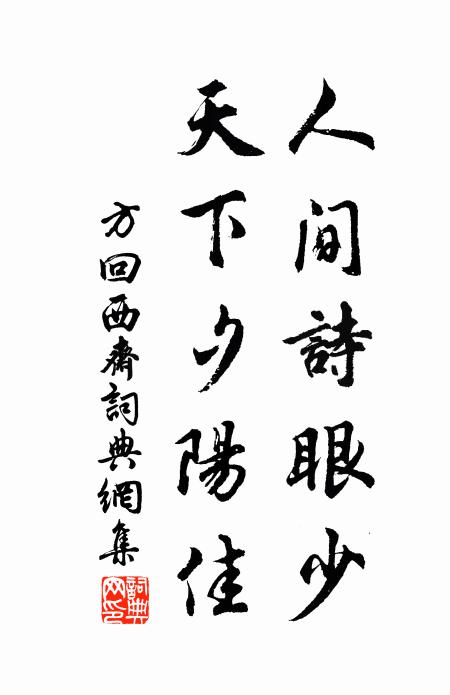 人間詩眼少
天下夕陽佳
方回西齋詞典網集
詞典網印